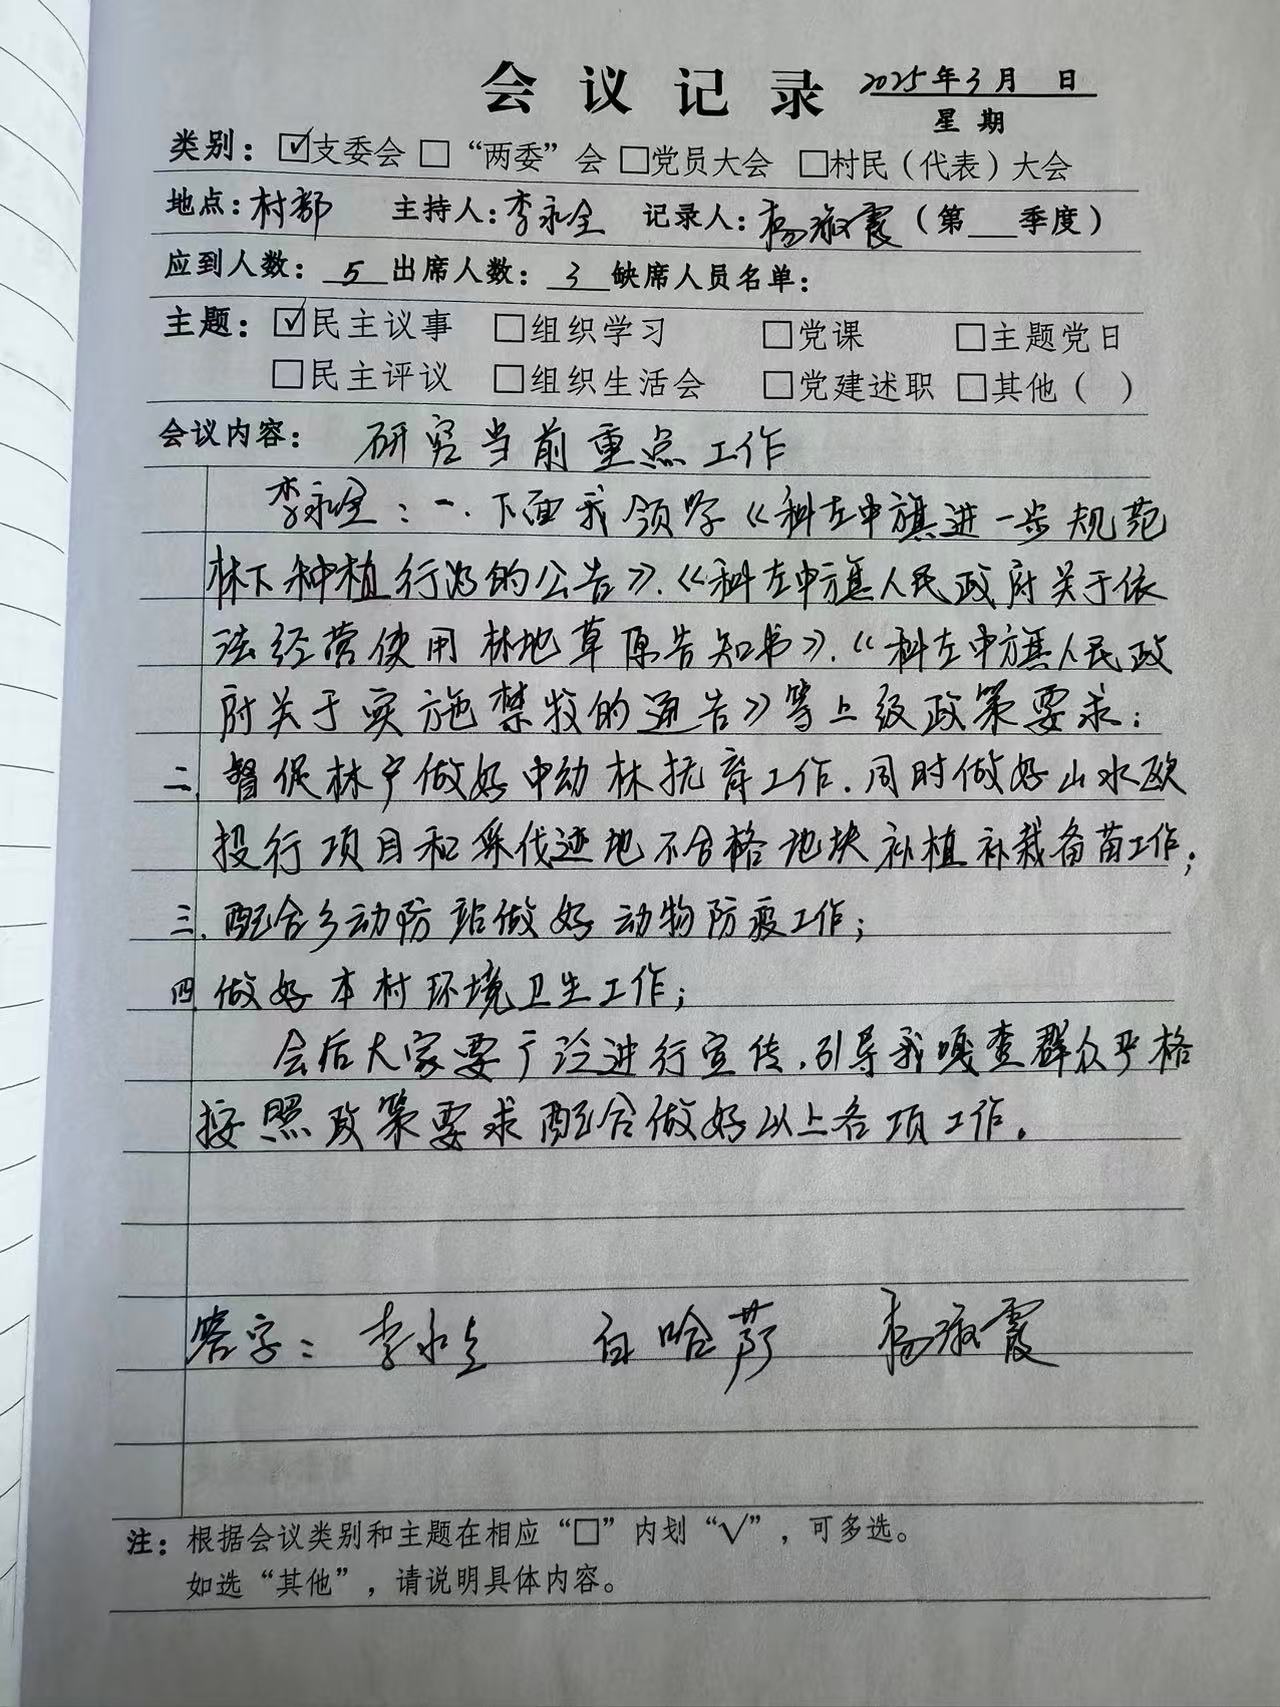 会议记录 2025年3月 日
星期
类别：☑支委会 □“两委”会 □党员大会 □村民（代表）大会
地点：村部 主持人：李永全 记录人：杨淑霞（第 季度）
应到人数：5 出席人数：3 缺席人员名单：
主题：☑民主议事 □组织学习 □党课 □主题党日
□民主评议 □组织生活会 □党建述职 □其他（ ）
会议内容：研究当前重点工作
李永全：一、下面我领学《科左中旗进一步规范
林下种植行为的公告》、《科左中旗人民政府关于依
法经营使用林地草原告知书》、《科左中旗人民政
府关于实施禁牧的通告》等上级政策要求；
二、督促林户做好中幼林抚育工作，同时做好山水欧
投行项目和采伐迹地不合格地块补植补栽备苗工作；
三、配合乡动防站做好动物防疫工作；
四、做好本村环境卫生工作；
会后大家要广泛进行宣传，引导我嘎查群众严格
按照政策要求配合做好以上各项工作。
签字：李永全 白哈 杨淑霞
注：根据会议类别和主题在相应“□”内划“√”，可多选。
如选“其他”，请说明具体内容。